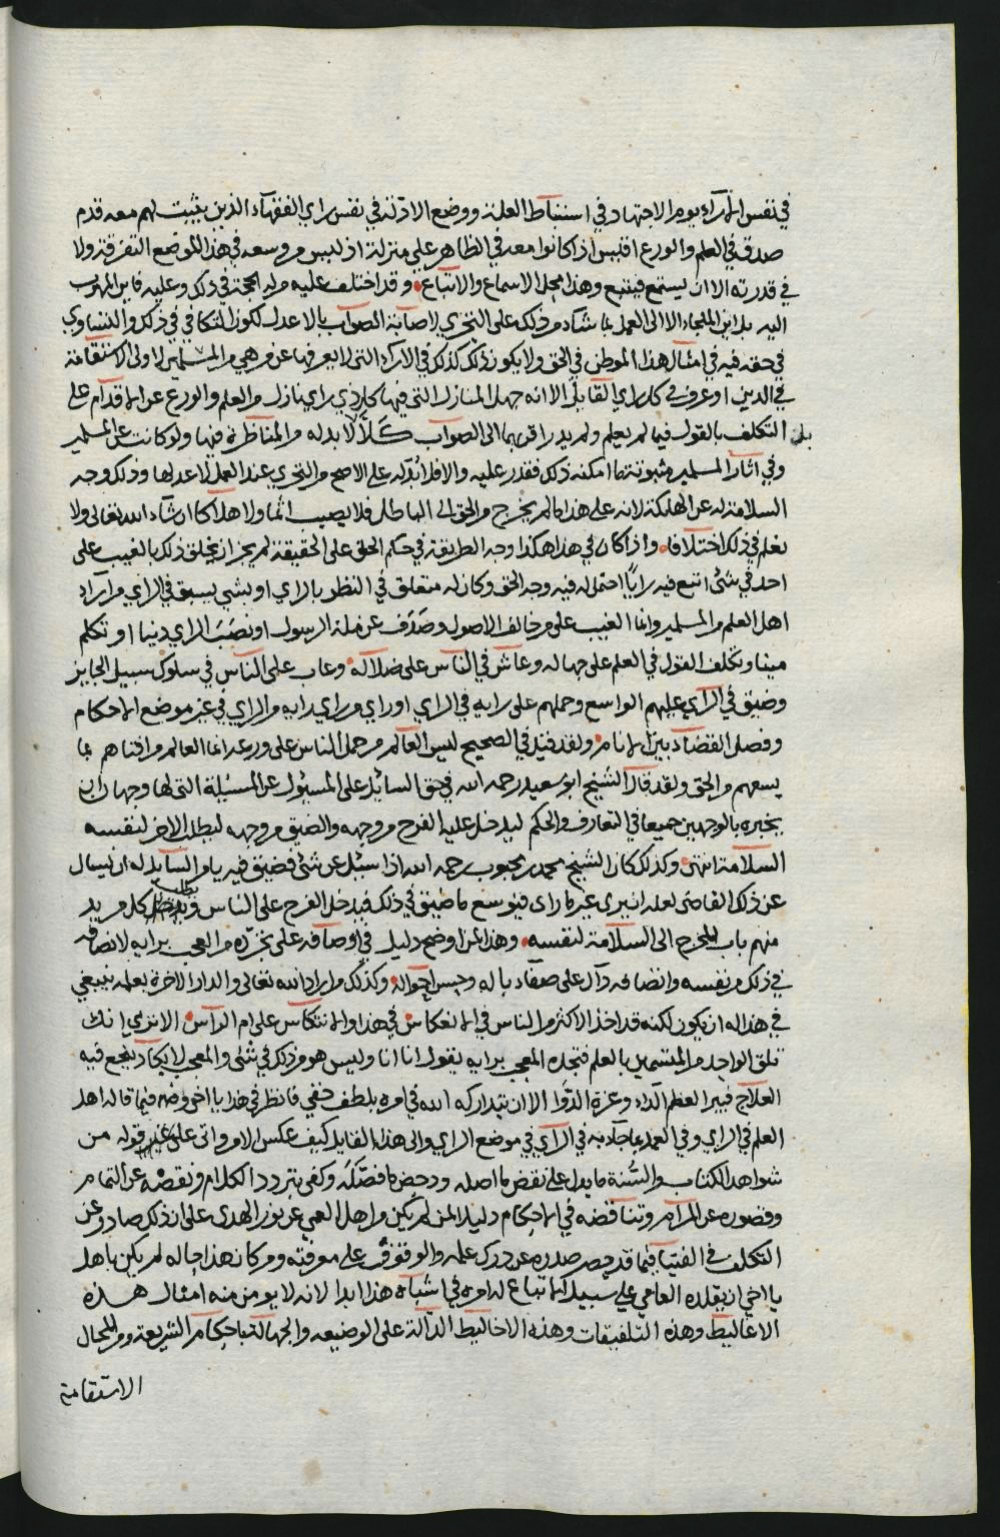 في نفس الآراء يوم الاجتهاد في استنباط العلة ووضع الادلة في نفس راي الفقهآء الذين يثبت لهم معه قدم
صدق في العلم والورع افليس اذا كانوا معه في الظاهر علي منزلة اذ ليس من وسعه في هذا الموضع التفرقة ولا
في قدرته الا ان يستمع فيتبع وهذا محل الاسماع والاتباع وقد اختلف عليه من له الحجة في ذلك وعليه فاين المهرب
اليه بل اين الملجاء الا الى العمل بما شآء من ذلك على التحري لاصابة الصواب بالاعدل لكون التكافي في ذلك والتساوي
في حقه فيه في امثال هذا الموطن في الحق ولا يكون ذلك كذلك في الارآء التي لا يعرفها عن من هي من المسلمين اولى الاستقامة
في الدين او عرف في كل راي القايل الا انه جهل المنازل التي فيها كل ذي راي نازل من العلم والورع عن الاقدام على
بل التكلف بالقول فيما لم يعلم ولم يدر اقربهما الى الصواب كلا لا بد له من المناظرة فيها ولو كانت عن المسلمين
وفي اثار المسلمين مثبوتة ما امكنه ذلك فقدر عليه والا فلا بد له على الاصح من التحري عند العمل لاعدلها وذلك وجه
السلامة له عن الهلكة لانه على هذا ما لم يخرج من الحق الى الباطل فلا يصيب اثما ولا هلاكا ان شآء الله تعالى ولا
نعلم في ذلك اختلافا واذا كان في هذا هكذا وجه الطريقة في حكم الحق على الحقيقة لم يجز ان يخلق ذلك بالغيب على
احد في شئ اتبع فيه رايًا احتمل له فيه وجه الحق وكان له متعلق في النظر بالراي او بشي يسبق في الراي من آرآء
اهل العلم من المسلمين وانما الغيب على من خالف الاصول وصدف عن ملة الرسول او نصب الراي دينا او تكلم
مينا وتكلف القول في العلم على جهاله وعاش في الناس على ضلاله وعاب على الناس في سلوك سبيل الجايز
وضيق في الراي عليهم الواسع وحملهم على رايه في الراي او راي من راي رايه من الراي في غير موضع الاحكام
وفصل القضآء بين الانام ولقد قيل في الصحيح ليس العالم من حمل الناس على ورعه انما العالم من افتاهم بما
يسعهم من الحق ولقد قال الشيخ ابو سعيد رحمه الله في حق السائل على المسئول عن المسئلة التي لها وجهان ان
يخبره بالوجهين جميعا في التعارف والحكم ليدخل عليه الفرج من وجهه والضيق من وجهه ليطلب الاخر لنفسه
السلامة انتهى وكذلك كان الشيخ محمد بن محبوب رحمه الله اذا سئل عن شئ فضيق فيه يامر السايل له ان يسال
عن ذلك القاضي لعله ان يرى غير ما راى فيوسع ما ضيق في ذلك فيدخل الفرج على الناس ويطلب كل مريد
منهم باب المخرج الى السلامة لنفسه وهذا من اوضح دليل في اوصافه على تجرده من العجب برايه لانصافه
في ذلك من نفسه وانصافه دآل على صفآء باله وحسن احواله وكذلك من اراد الله تعالى والدار الاخرة بعلمه ينبغي
في هذا له ان يكون لكنه قد اخذ الاكثر من الناس في الانعكاس في هذا والانتكاس على ام الراس الا تري انك
تلق الواحد من المتسمين بالعلم فتجده المعجب برايه يقول انا انا وليس هو من ذلك في شئ والمعجب لا يكاد ينجع فيه
العلاج فيبرا لعظم الدآء وعزة الدوا الا ان يتداركه الله في امره بلطف خفي فانظر في هذا يا اخي وفيما قاله اهل
العلم في الراي وفي العمل بما جآء به في الراي في موضع الراي والى هذا القايل كيف عكس الامر واتى على غير قوله من
شواهد الكتاب والسنة ما يدل على نقض ما اصله ودحض ما فصله وكفى بتردد الكلام ونقصه عن التمام
وقصوره عن المرام وتناقضه في الاحكام دليلا لمن لم يكن من اهل العمي عن نور الهدى على ان ذلك صادر عن
التكلف في الفتيا فيما قد حصر صدره عن درك علمه والوقوف على معرفته ومن كان هذا حاله لم يكن باهل
يا اخي ان يقلده العامي على سبيل الاتباع له امره في اشباه هذا ابدا لانه لا يومن منه امثال هذه
الاغاليط وهذه التلفيقات وهذه الاخاليط الدالة على الوضيعه والجهالة باحكام الشريعة ومن المحال
الاستقامة